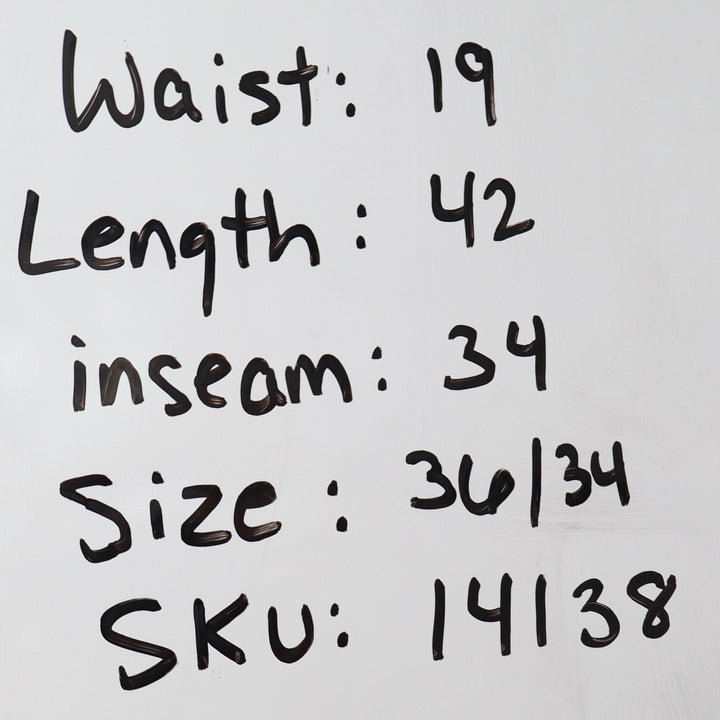 Waist: 19
Length: 42
inseam: 34
Size: 36|34
SKU: 14138